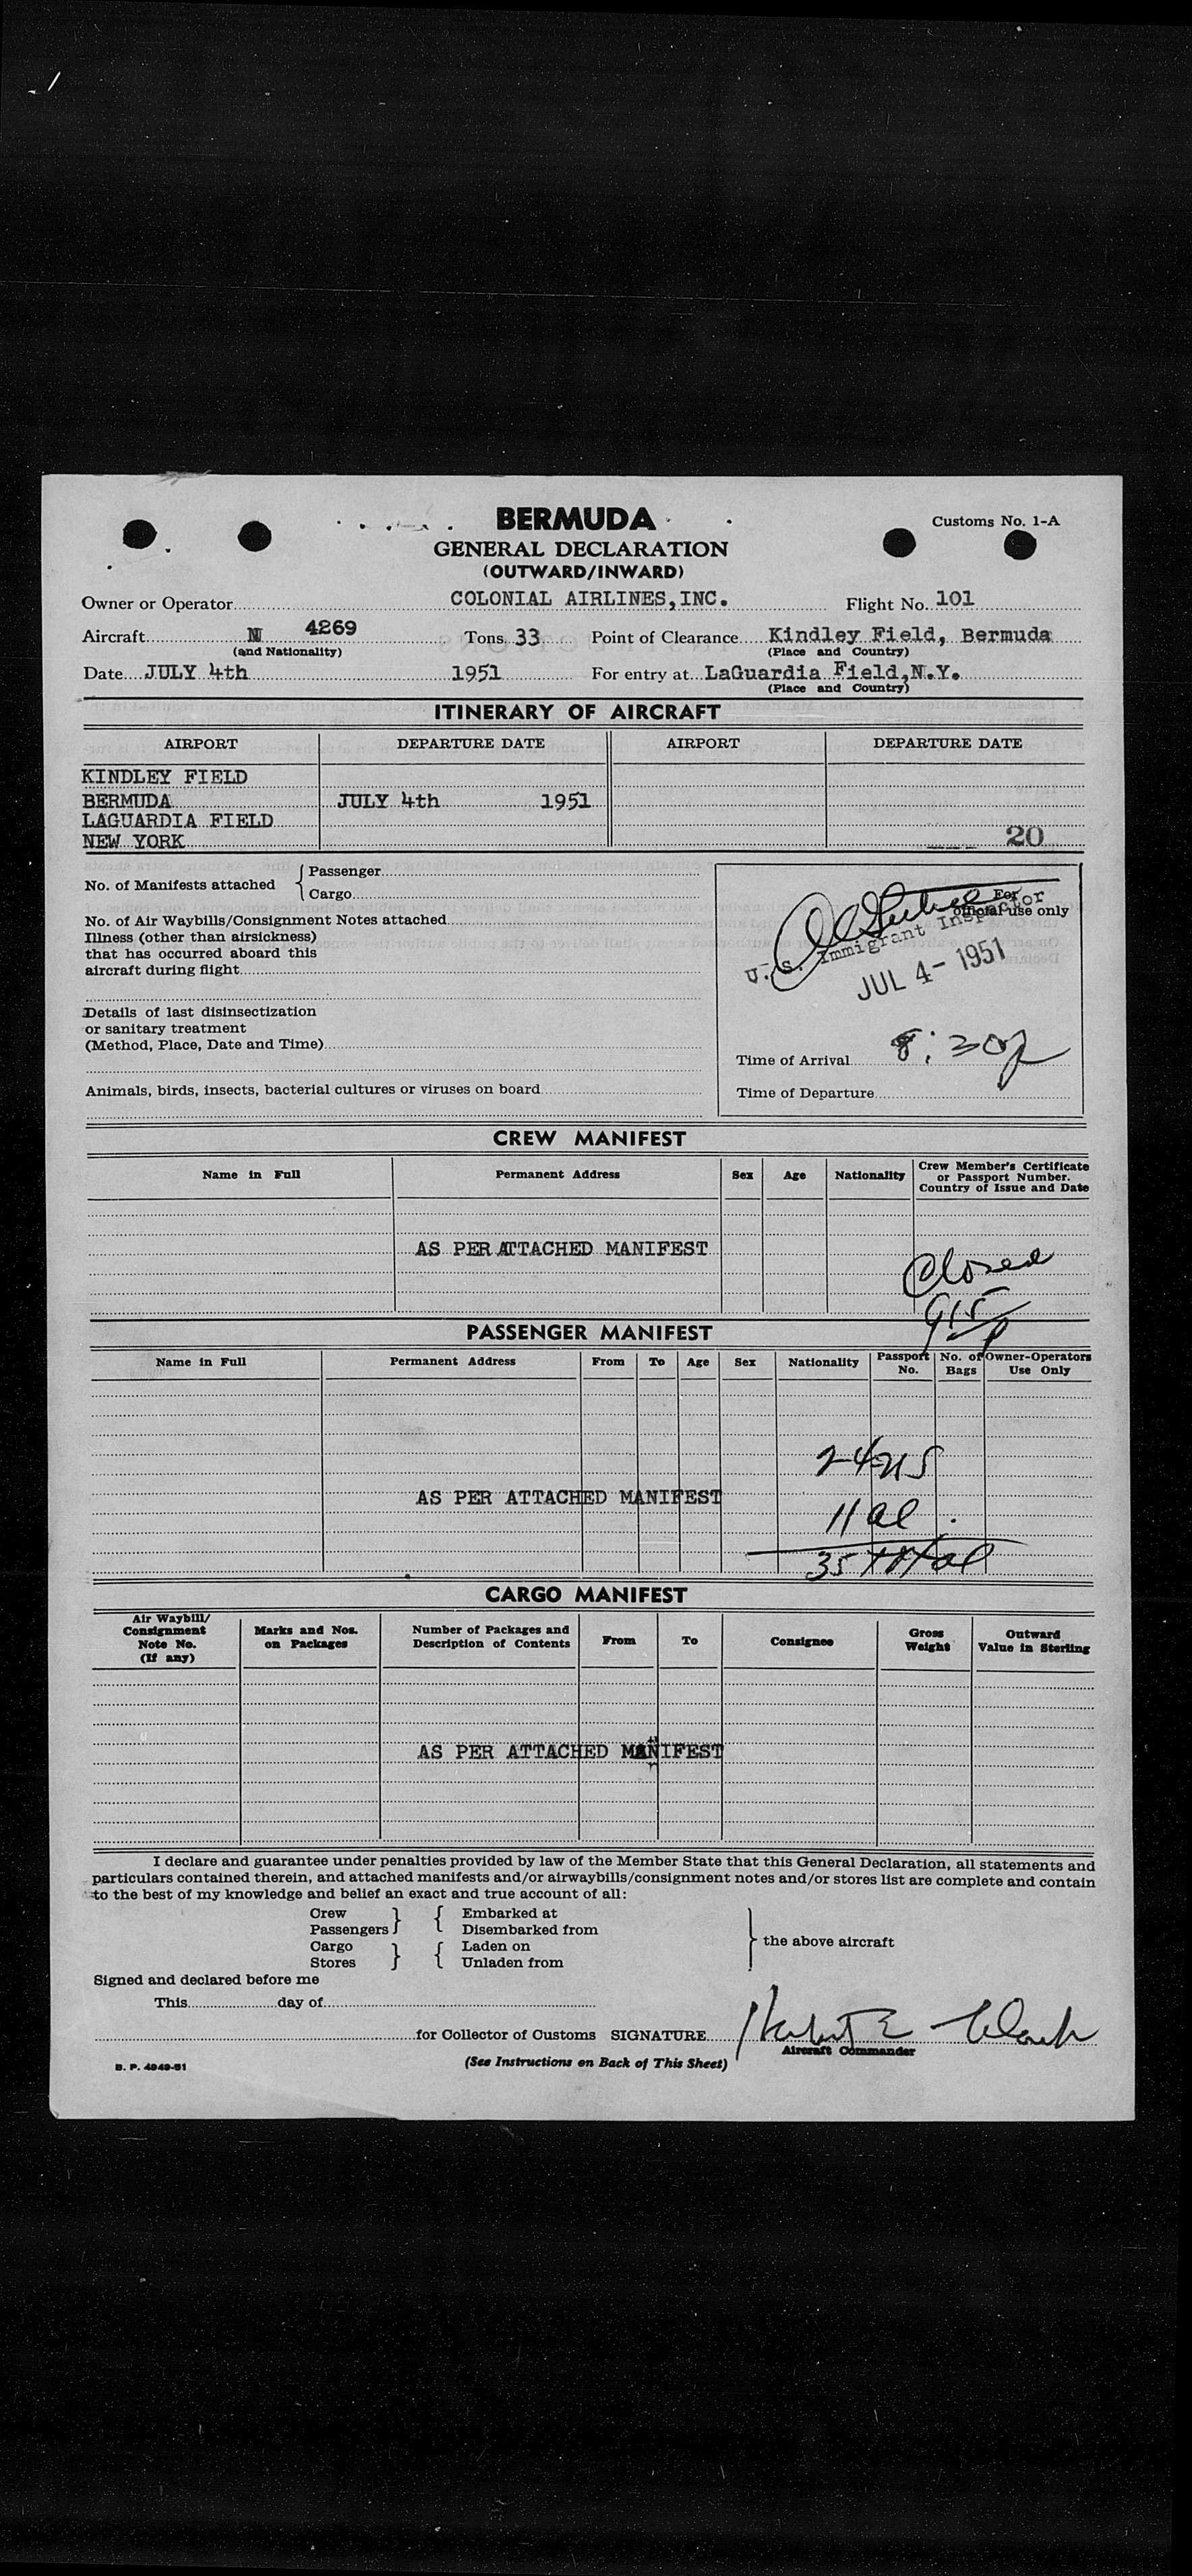 BERMUDA
Customs No. 1-A
GENERAL DECLARATION
(OUTWARD/INWARD)
Owner or Operator COLONIAL AIRLINES,INC. Flight No. 101
Aircraft N 4269 Tons 33 Point of Clearance Kindley Field, Bermuda
(and Nationality) (Place and Country)
Date JULY 4th 1951 For entry at LaGuardia Field,N.Y.
(Place and Country)
ITINERARY OF AIRCRAFT
AIRPORT DEPARTURE DATE AIRPORT DEPARTURE DATE
KINDLEY FIELD
BERMUDA JULY 4th 1951
LAGUARDIA FIELD
NEW YORK 20
No. of Manifests attached { Passenger
Cargo
No. of Air Waybills/Consignment Notes attached
Illness (other than airsickness)
that has occurred aboard this
aircraft during flight
Details of last disinsectization
or sanitary treatment
(Method, Place, Date and Time)
Animals, birds, insects, bacterial cultures or viruses on board
For
official use only
U. S. Immigrant Inspector
JUL 4- 1951
Time of Arrival 8:30p
Time of Departure
CREW MANIFEST
Name in Full Permanent Address Sex Age Nationality Crew Member's Certificate
or Passport Number.
Country of Issue and Date
AS PER ATTACHED MANIFEST
Closed
915p
PASSENGER MANIFEST
Name in Full Permanent Address From To Age Sex Nationality Passport No. No. of Bags Owner-Operators Use Only
24 US
AS PER ATTACHED MANIFEST
11 al
35 total
CARGO MANIFEST
Air Waybill/
Consignment
Note No.
(If any)
Marks and Nos.
on Packages
Number of Packages and
Description of Contents
From To Consignee
Gross
Weight
Outward
Value in Sterling
AS PER ATTACHED MANIFEST
I declare and guarantee under penalties provided by law of the Member State that this General Declaration, all statements and
particulars contained therein, and attached manifests and/or airwaybills/consignment notes and/or stores list are complete and contain
to the best of my knowledge and belief an exact and true account of all:
Crew } { Embarked at
Passengers Disembarked from
Cargo } { Laden on } the above aircraft
Stores Unladen from
Signed and declared before me
This day of
for Collector of Customs SIGNATURE Herbert E Clark
Aircraft Commander
B. P. 4949-51
(See Instructions on Back of This Sheet)